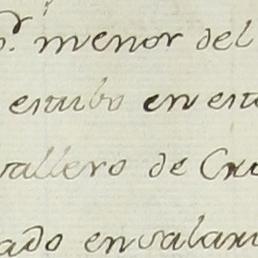 menor del
estubo en est
vallero de Cru
ado ensalar